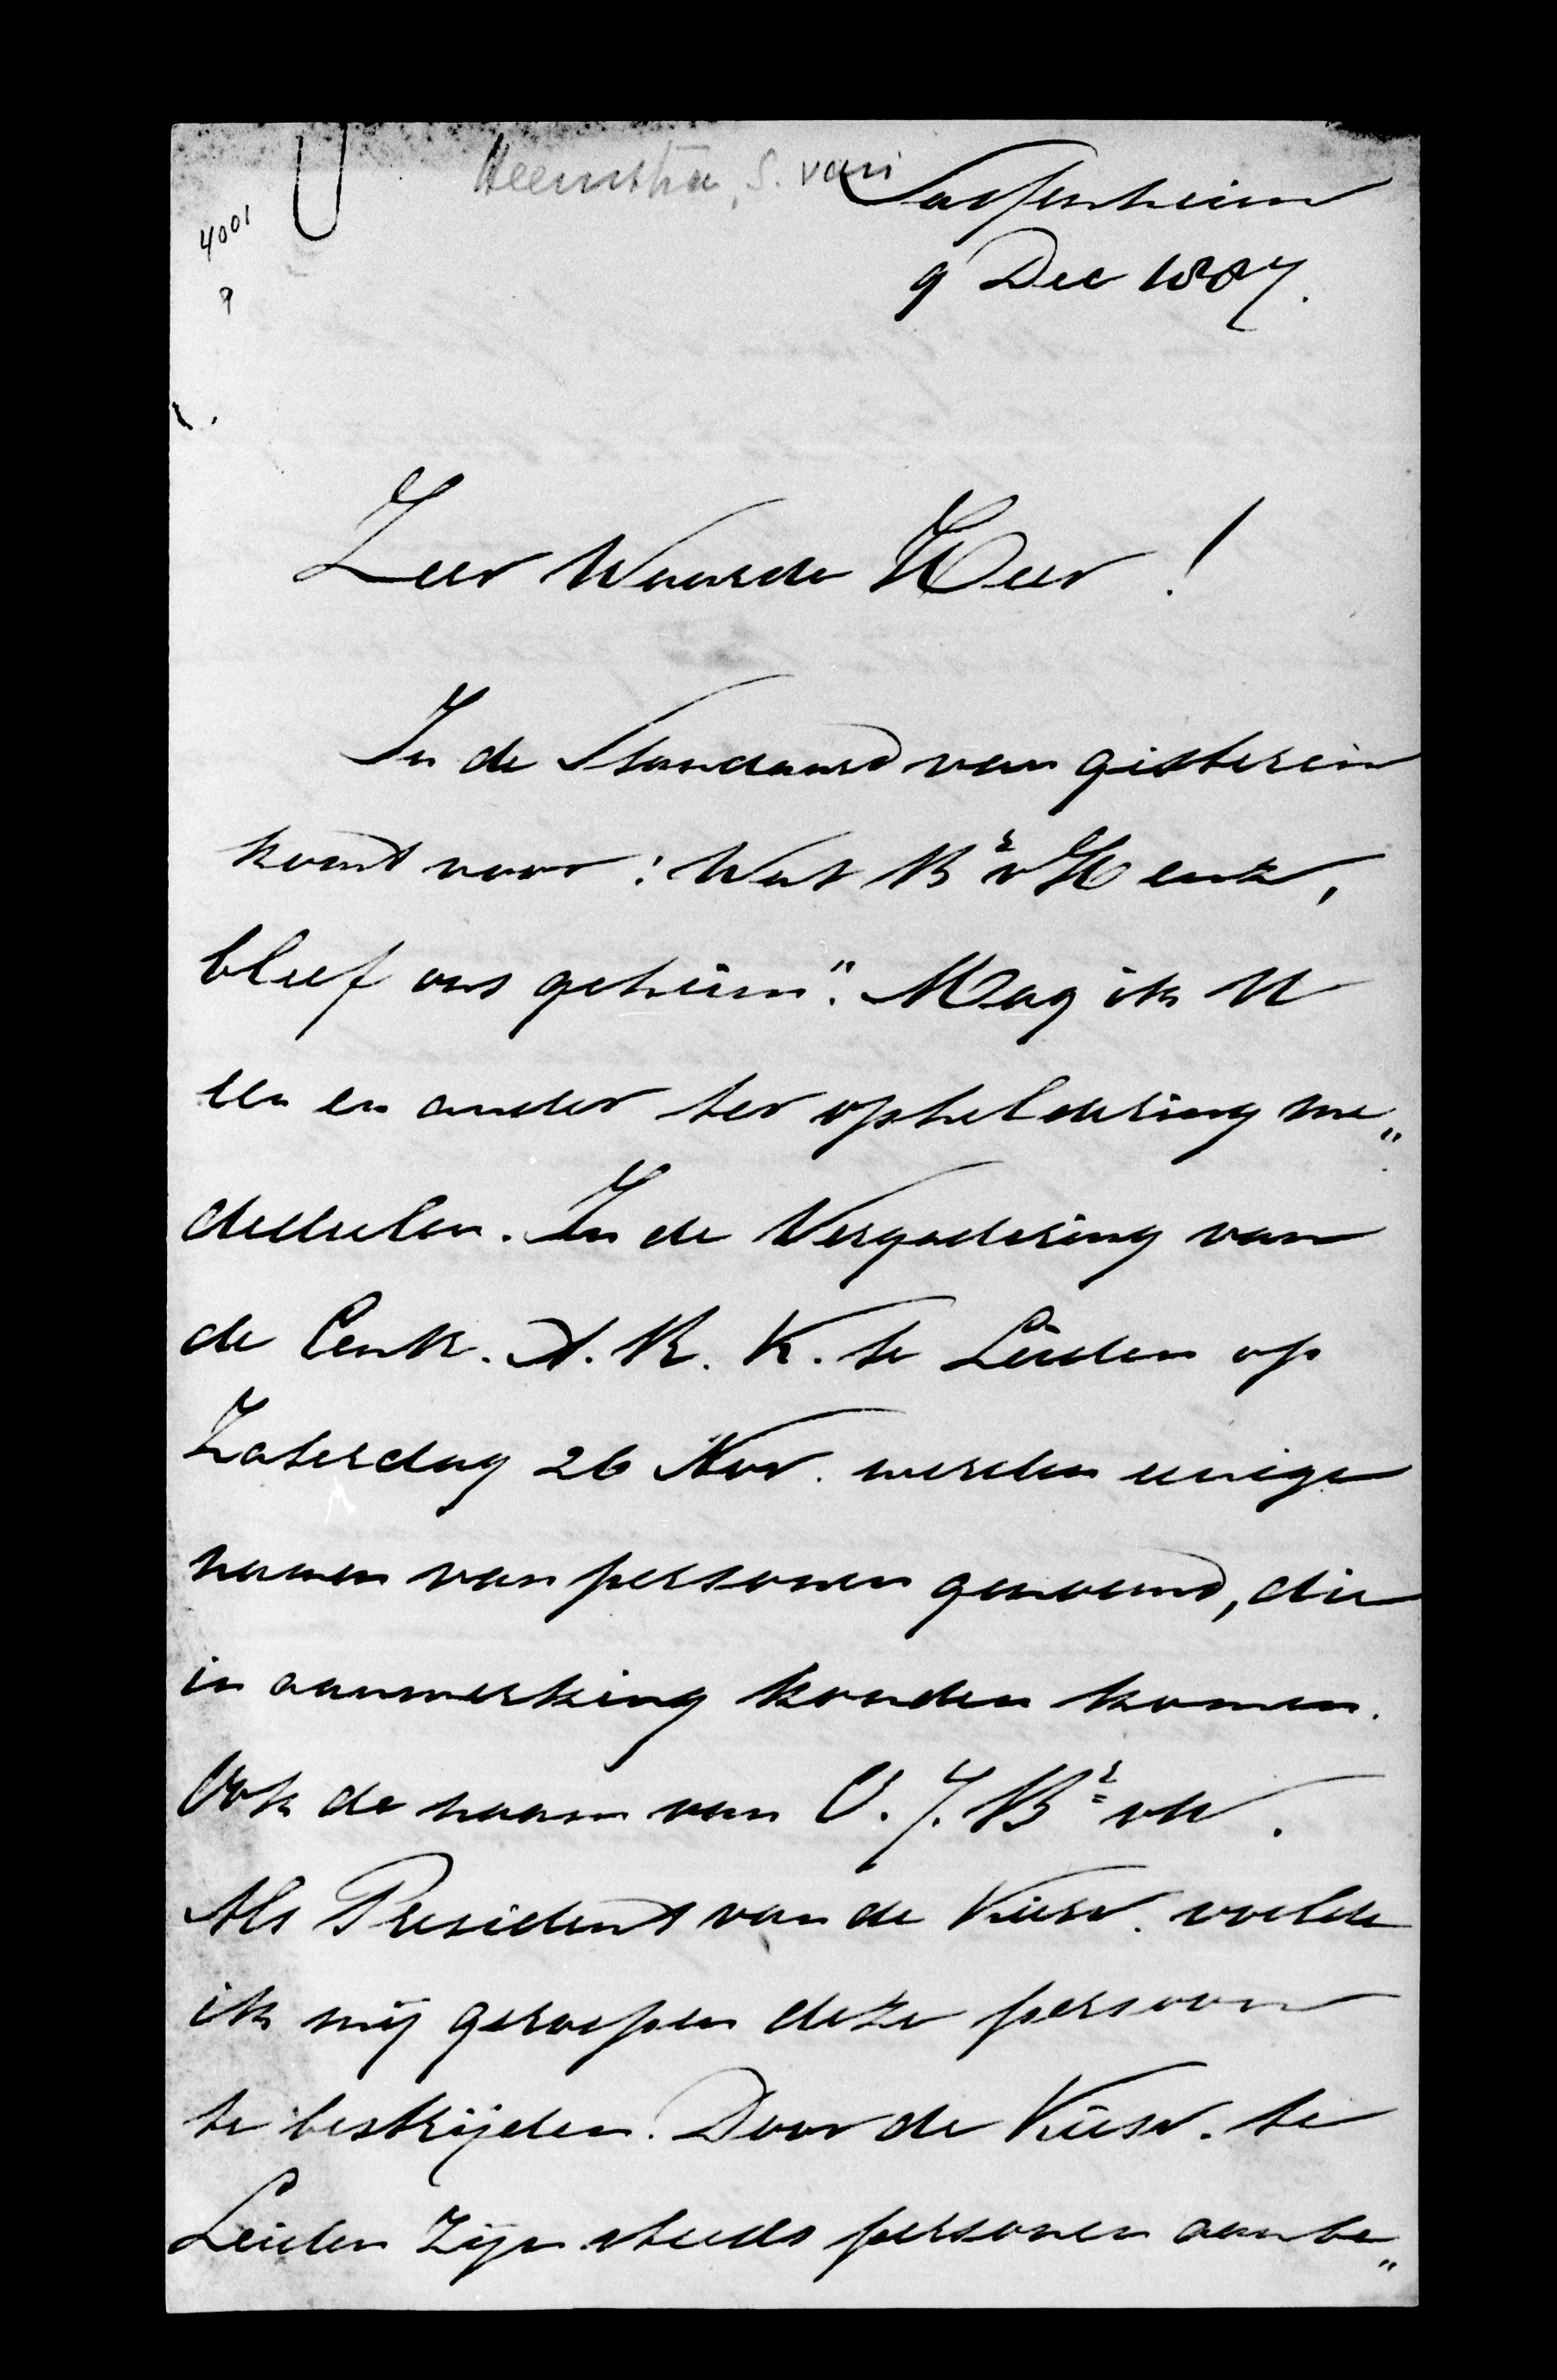 Heemstra, S. van
Sassenheim
4001
9 Dec 1887.
Zeer Waarde Heer!
In de Standaard van gisteren
komt voor: Wat Br v H enz,
bleef ons geheim". Mag ik U
een en ander ter opheldering me„
dedeelen. In de Vergadering van
de Centr. A. R. K. te Leiden op
Zaterdag 26 Nov. werden eenige
namen van personen genoemd, die
in aanmerking konden komen.
Ook de naam van O. J. Br v W.
Als President van de Kiesv. voelde
ik mij geroepen deze persoon
te bestrijden. Door de Kiesv. te
Leiden zijn steeds personen aanbe„